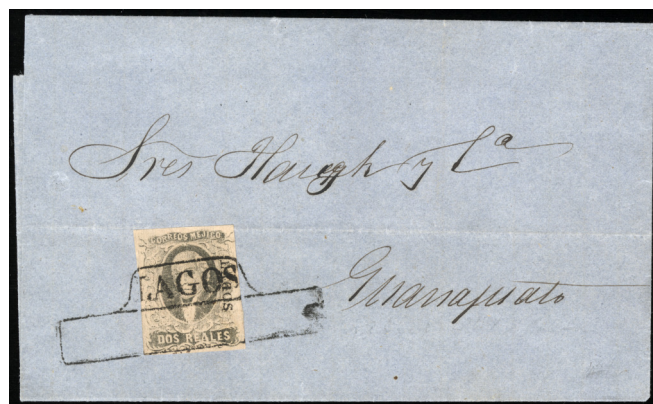 Sres Haugh y Ca
CORREOS MEJICO
LAGOS
AGOS
DOS REALES
Guanajuato